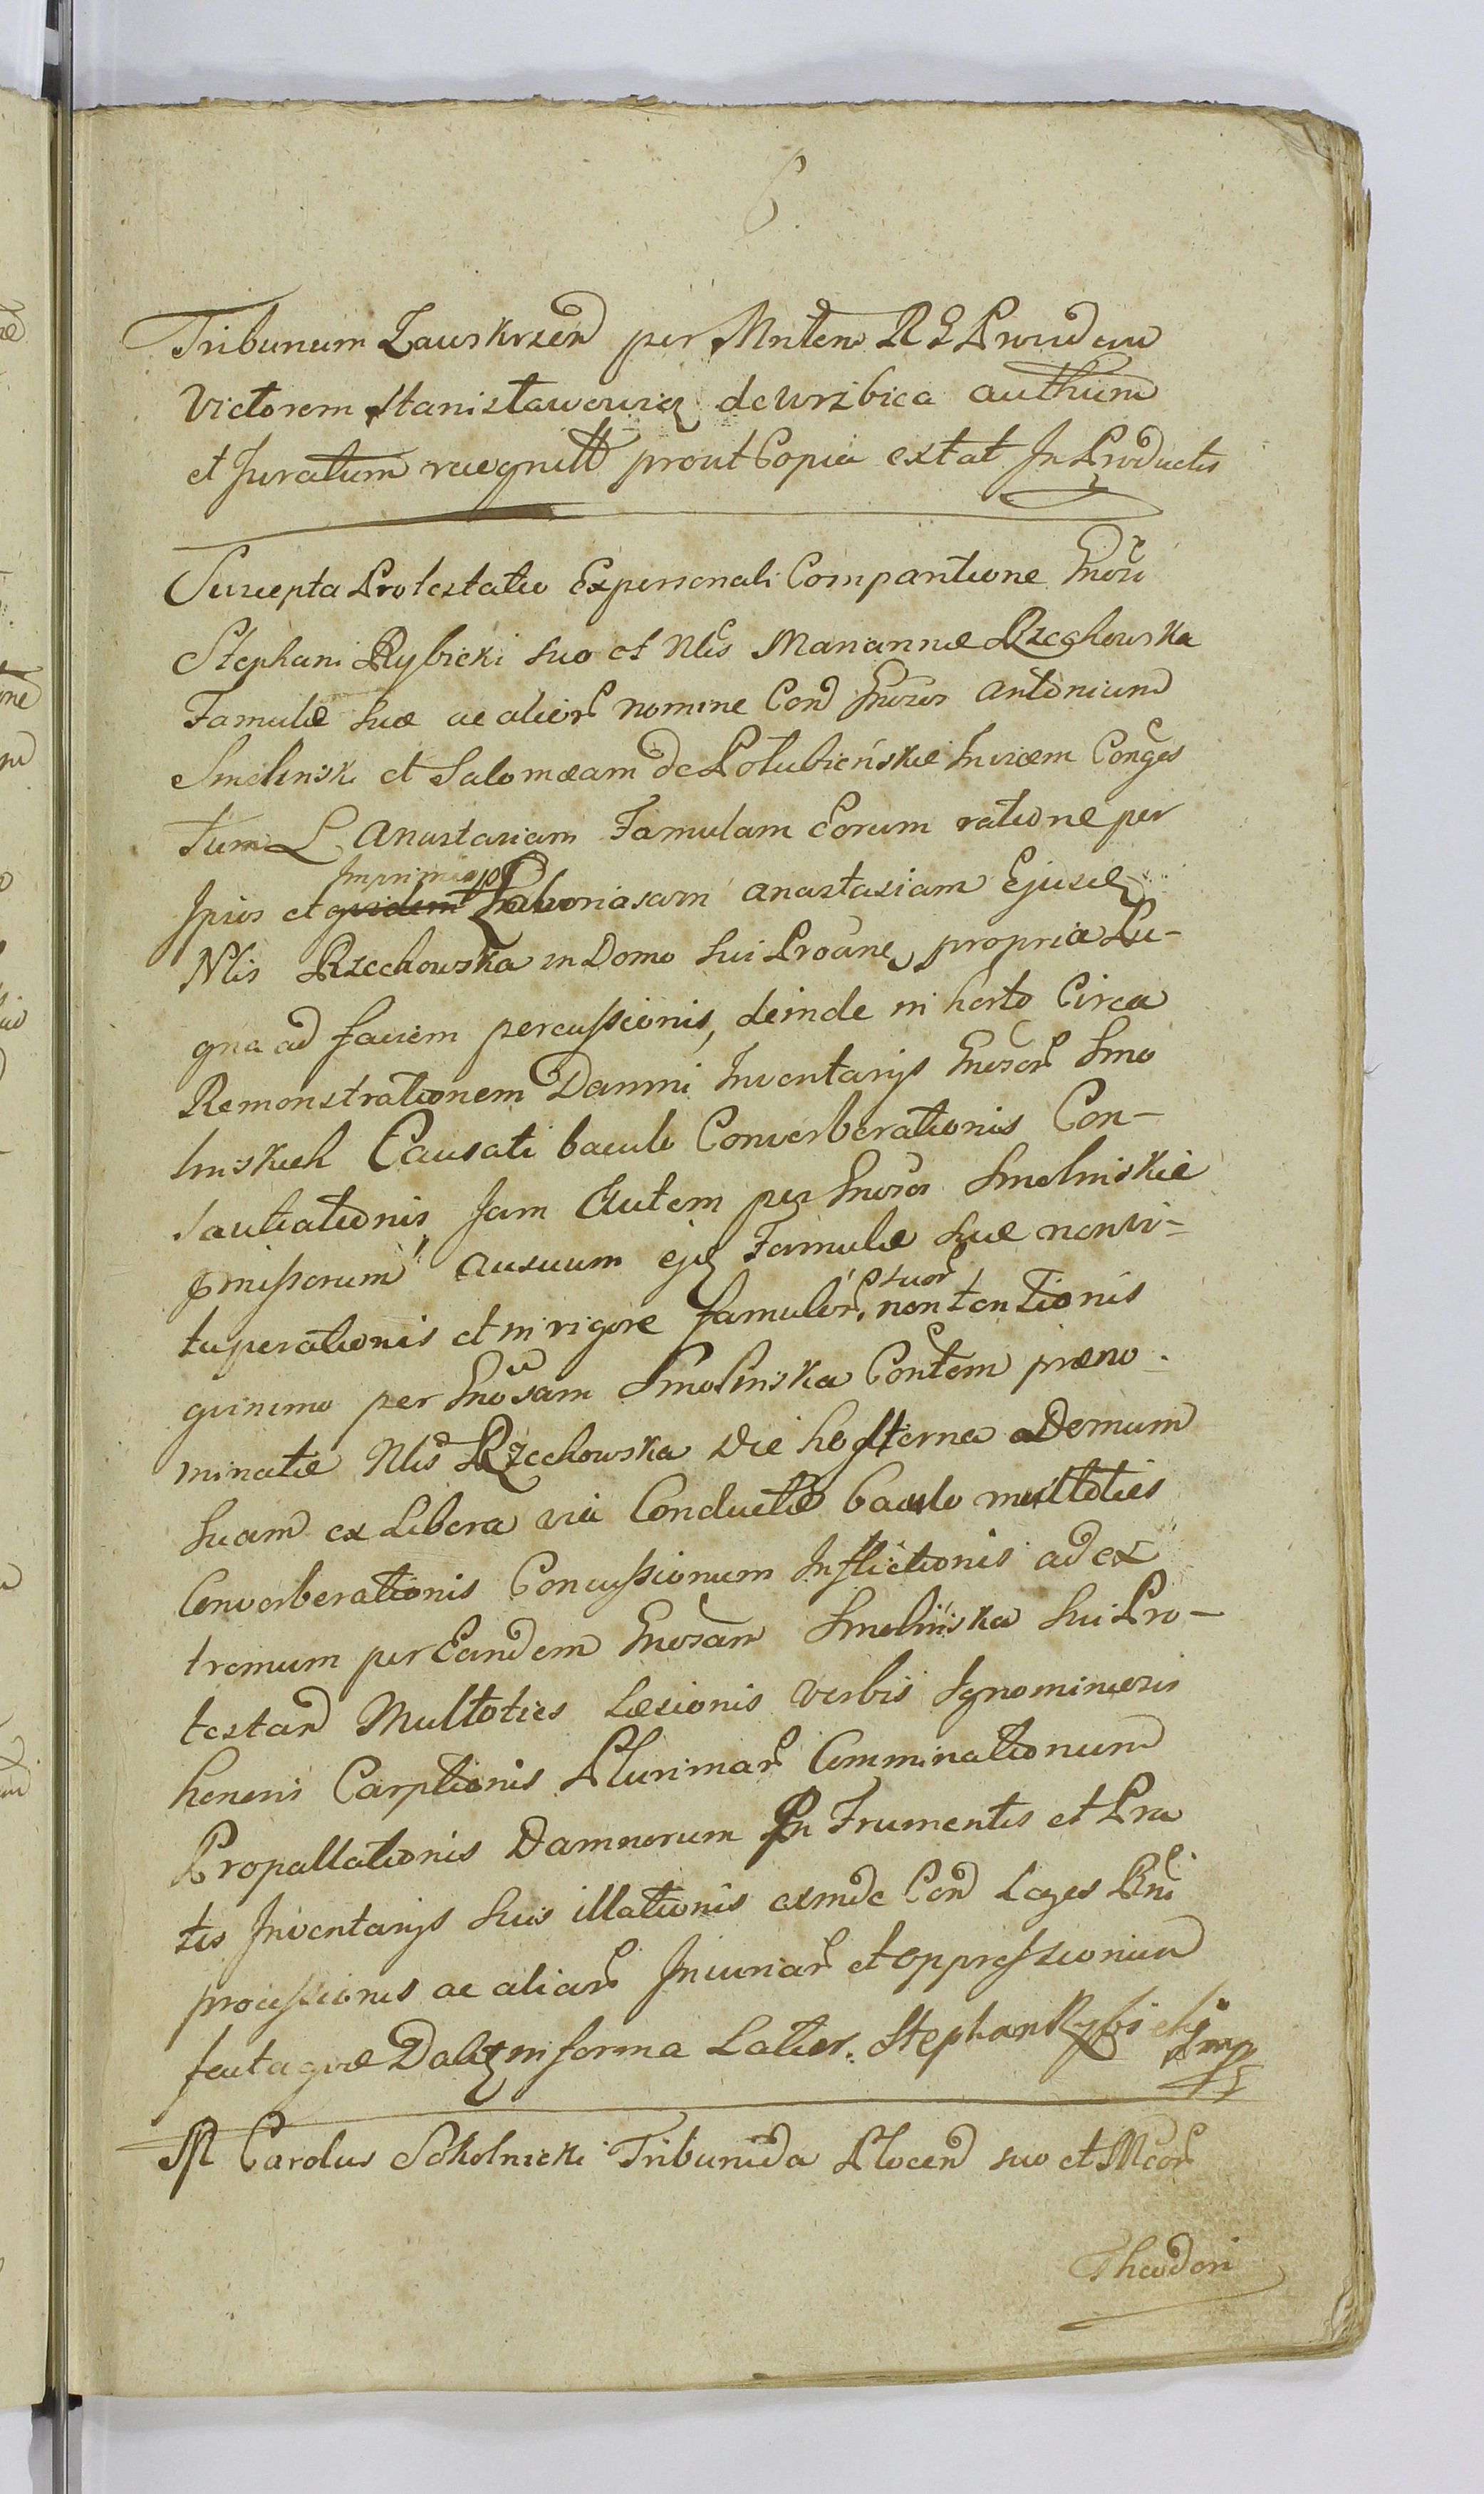 6
Tribunum Zawskrzen per Mntem R G Providum
Victorem Stanisławowicz de Wrzbica authum
et Juratum recognitt prout Copia extat In Productis
Suscepta Protestatio Expersonali Comparitione Gnosi
Stephani Rybicki suo et Nlis Mariannæ Rzechowska
Famulæ suæ ac alior nomine Con Gnosos Antonium
Smolinski et Salomæam de Połubieńskie Invicem Conges
tum L Anastasiam Famulam Eorum ratione per
Ipsos et quidem Imprimis Laboriosam Anastasiam Ejusd
Nlis Rzechowska in Domo sui Proane propria Pu-
gna ad faciem percussionis, deinde in horto Circa
Remonstrationem Damni Inventarijs Gnosor Smo
linskich Causati baculo Converberationis Con-
sautiationis Jam Autem per Gnosos Smolinskie
pmissorum ausuum ejq Famulæ suæ nonvi-
tuperationis et in rigore famulor suor nontentionis
quinimo per Gnosam Smolinska Contem præno-
minatæ Nlis Rzechowska die hesterna ad Domum
suam ex Libera via Conductæ baculo multoties
Converberationis Concussionum Inflictionis ad ex
tremum per Eandem Gnosam Smolinska sui Pro-
testan Multoties Læsionis verbis Ignominiosis
honoris Carptionis Plurimar Comminationum
Propallationis Damnorum In Frumentis et Pra
tis Inventarijs suis illationis exinde Con Leges Rni
processionis ac aliar Iniuriar et oppressionum
feutaque Dalez in forma Latior. Stephan Rybicki
mp
M Carolus Sokolnicki Tribunida Plocen suo et Mcor
Theodori